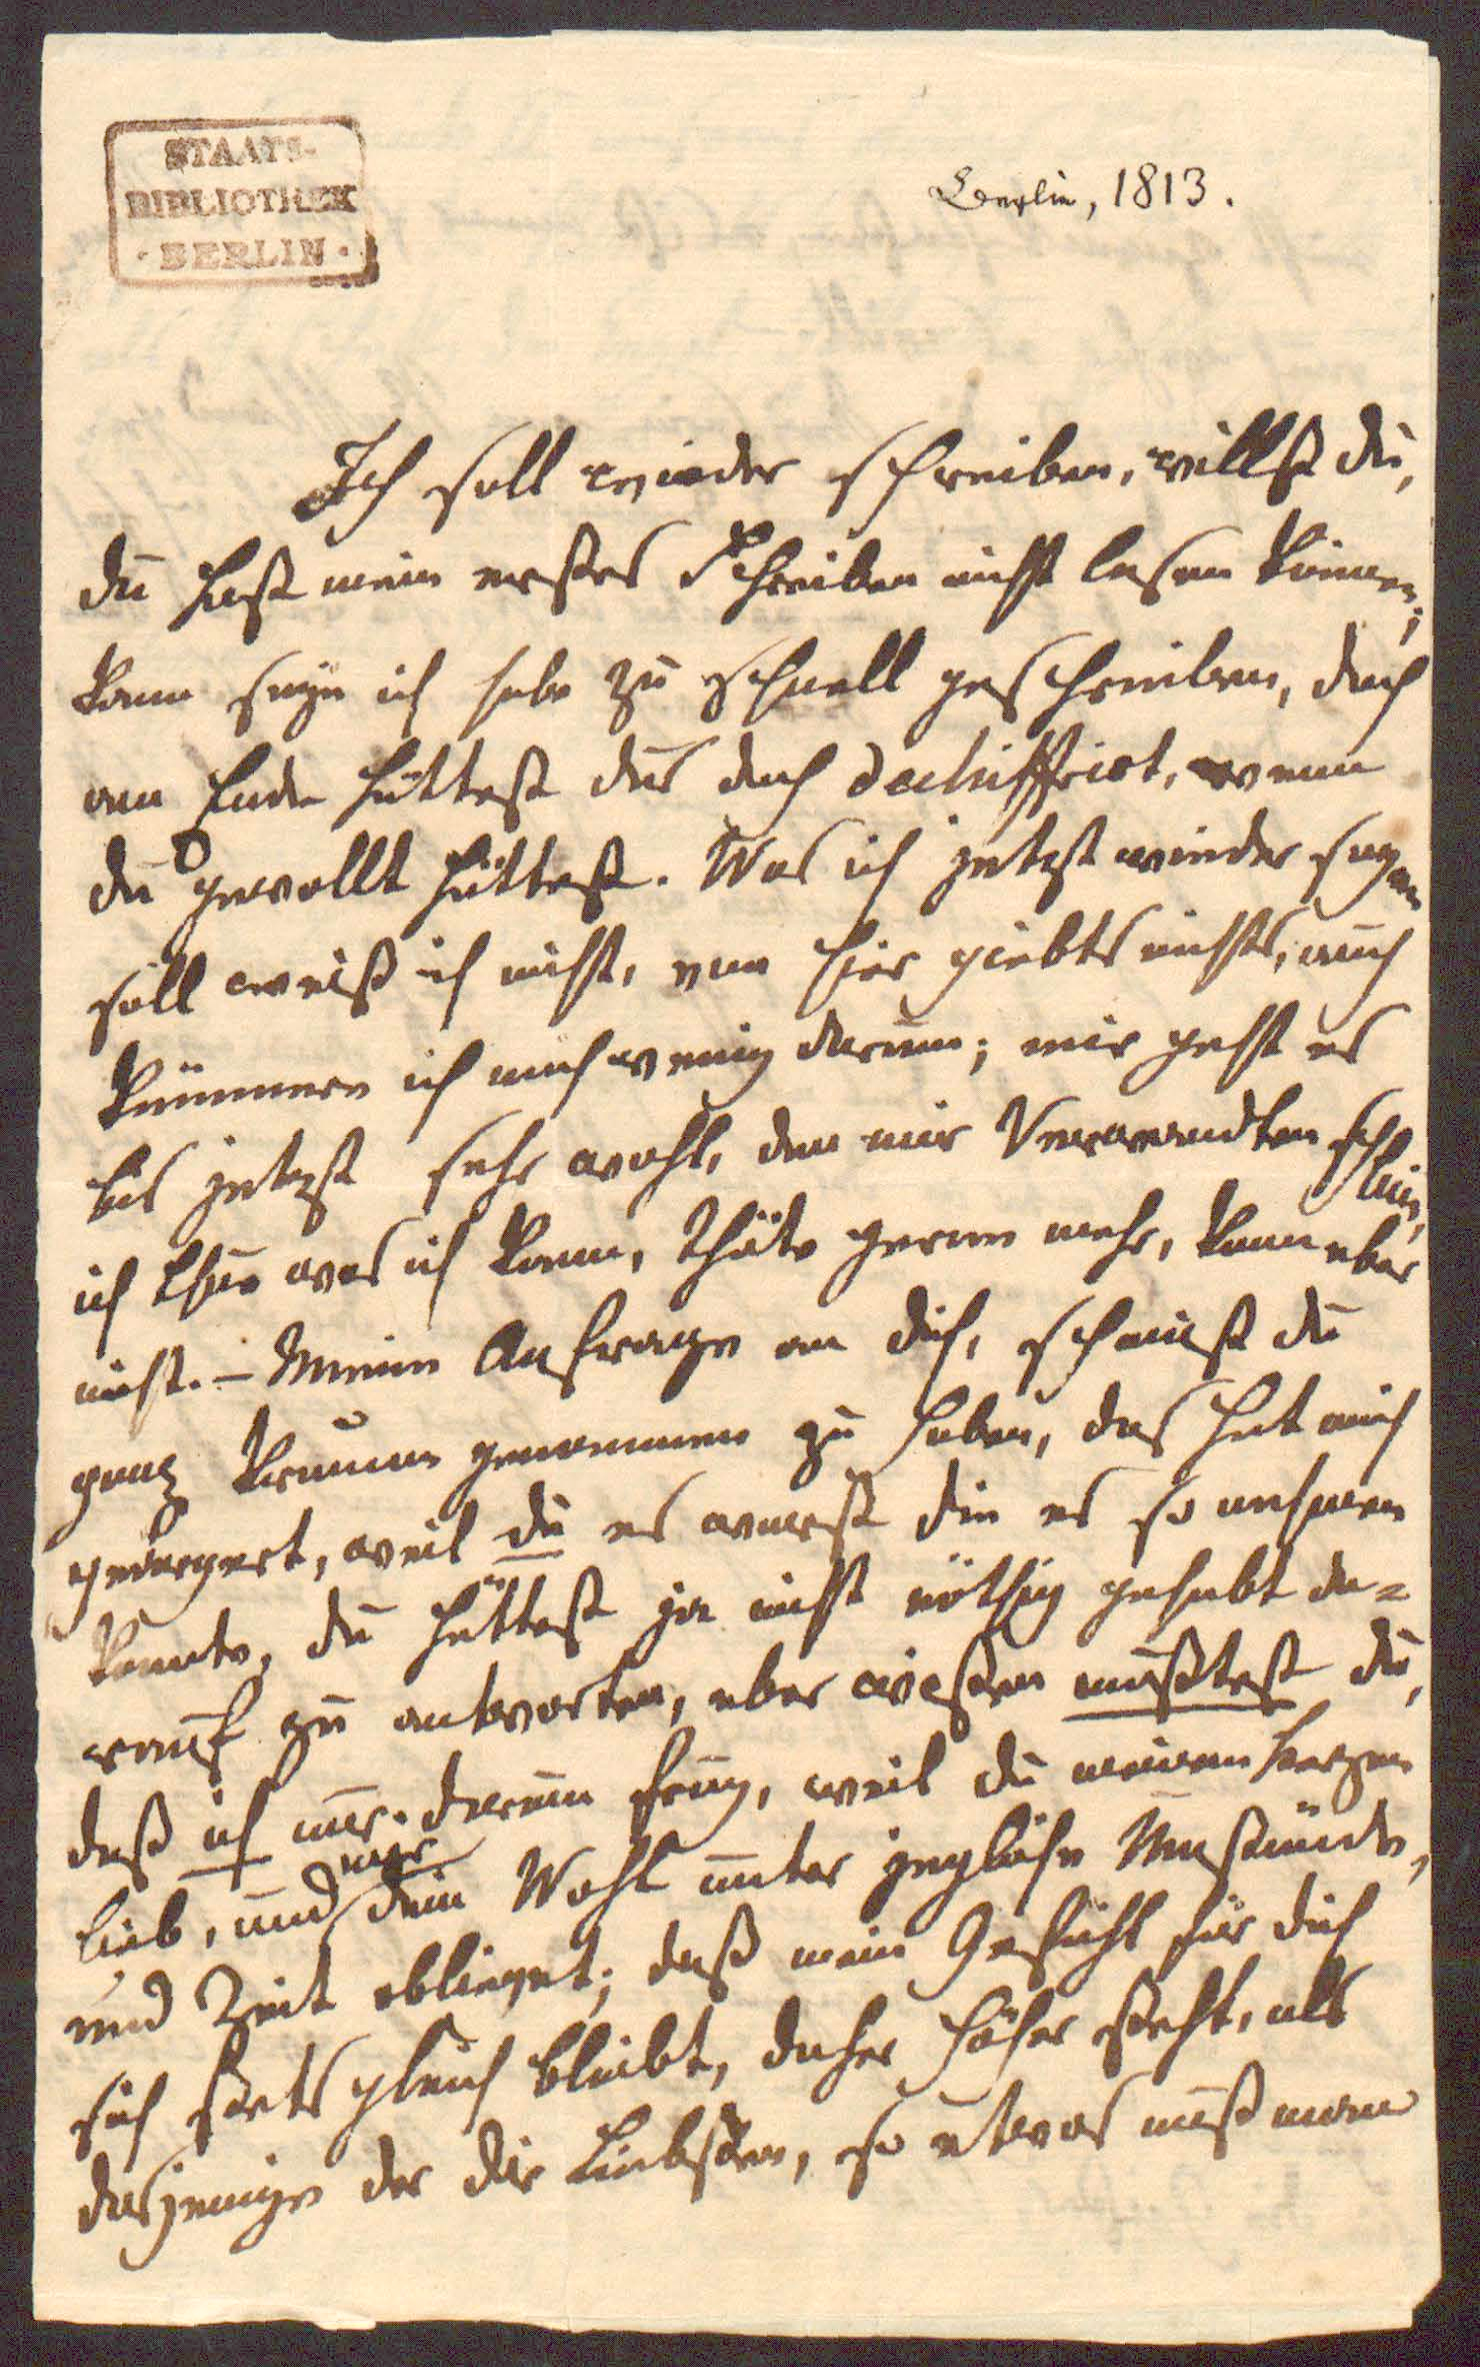 STAATS-
BIBLIOTHEK
· BERLIN ·
Berlin, 1813.
Ich soll wieder schreiben, willst du,
du hast mein erstes Schreiben nicht lesen können;
kann seyn ich habe zu schnell geschrieben, doch
am Ende hättest du's doch dechiffrirt, wenn
du gewollt hättest. Was ich jetzt wieder sagen
soll weiß ich nicht, von hier giebts nichts, auch
kümmere ich mich wenig darum; mir geht es
bis jetzt sehr wohl, den mir Verwandten
ich thue was ich kann, thäte gerne mehr, kann aber
nicht. – Meine Anfrage an dich, scheinst du
ganz krumm genommen zu haben, das hat mich
geärgert, weil du es warst die es so nehmen
konnte, du hättest ja nicht nöthig gehabt da-
rauf zu antworten, aber wissen mußtest du,
daß ich nur darum frug, weil du meinem Herzen
lieb, und mir dein Wohl unter jegliche Umstände,
und Zeit obliegt; daß mein Gefühl für dich
sich stets gleich bleibt, daher höher steht, als
dasjenige der dir Liebsten, so etwas muß man